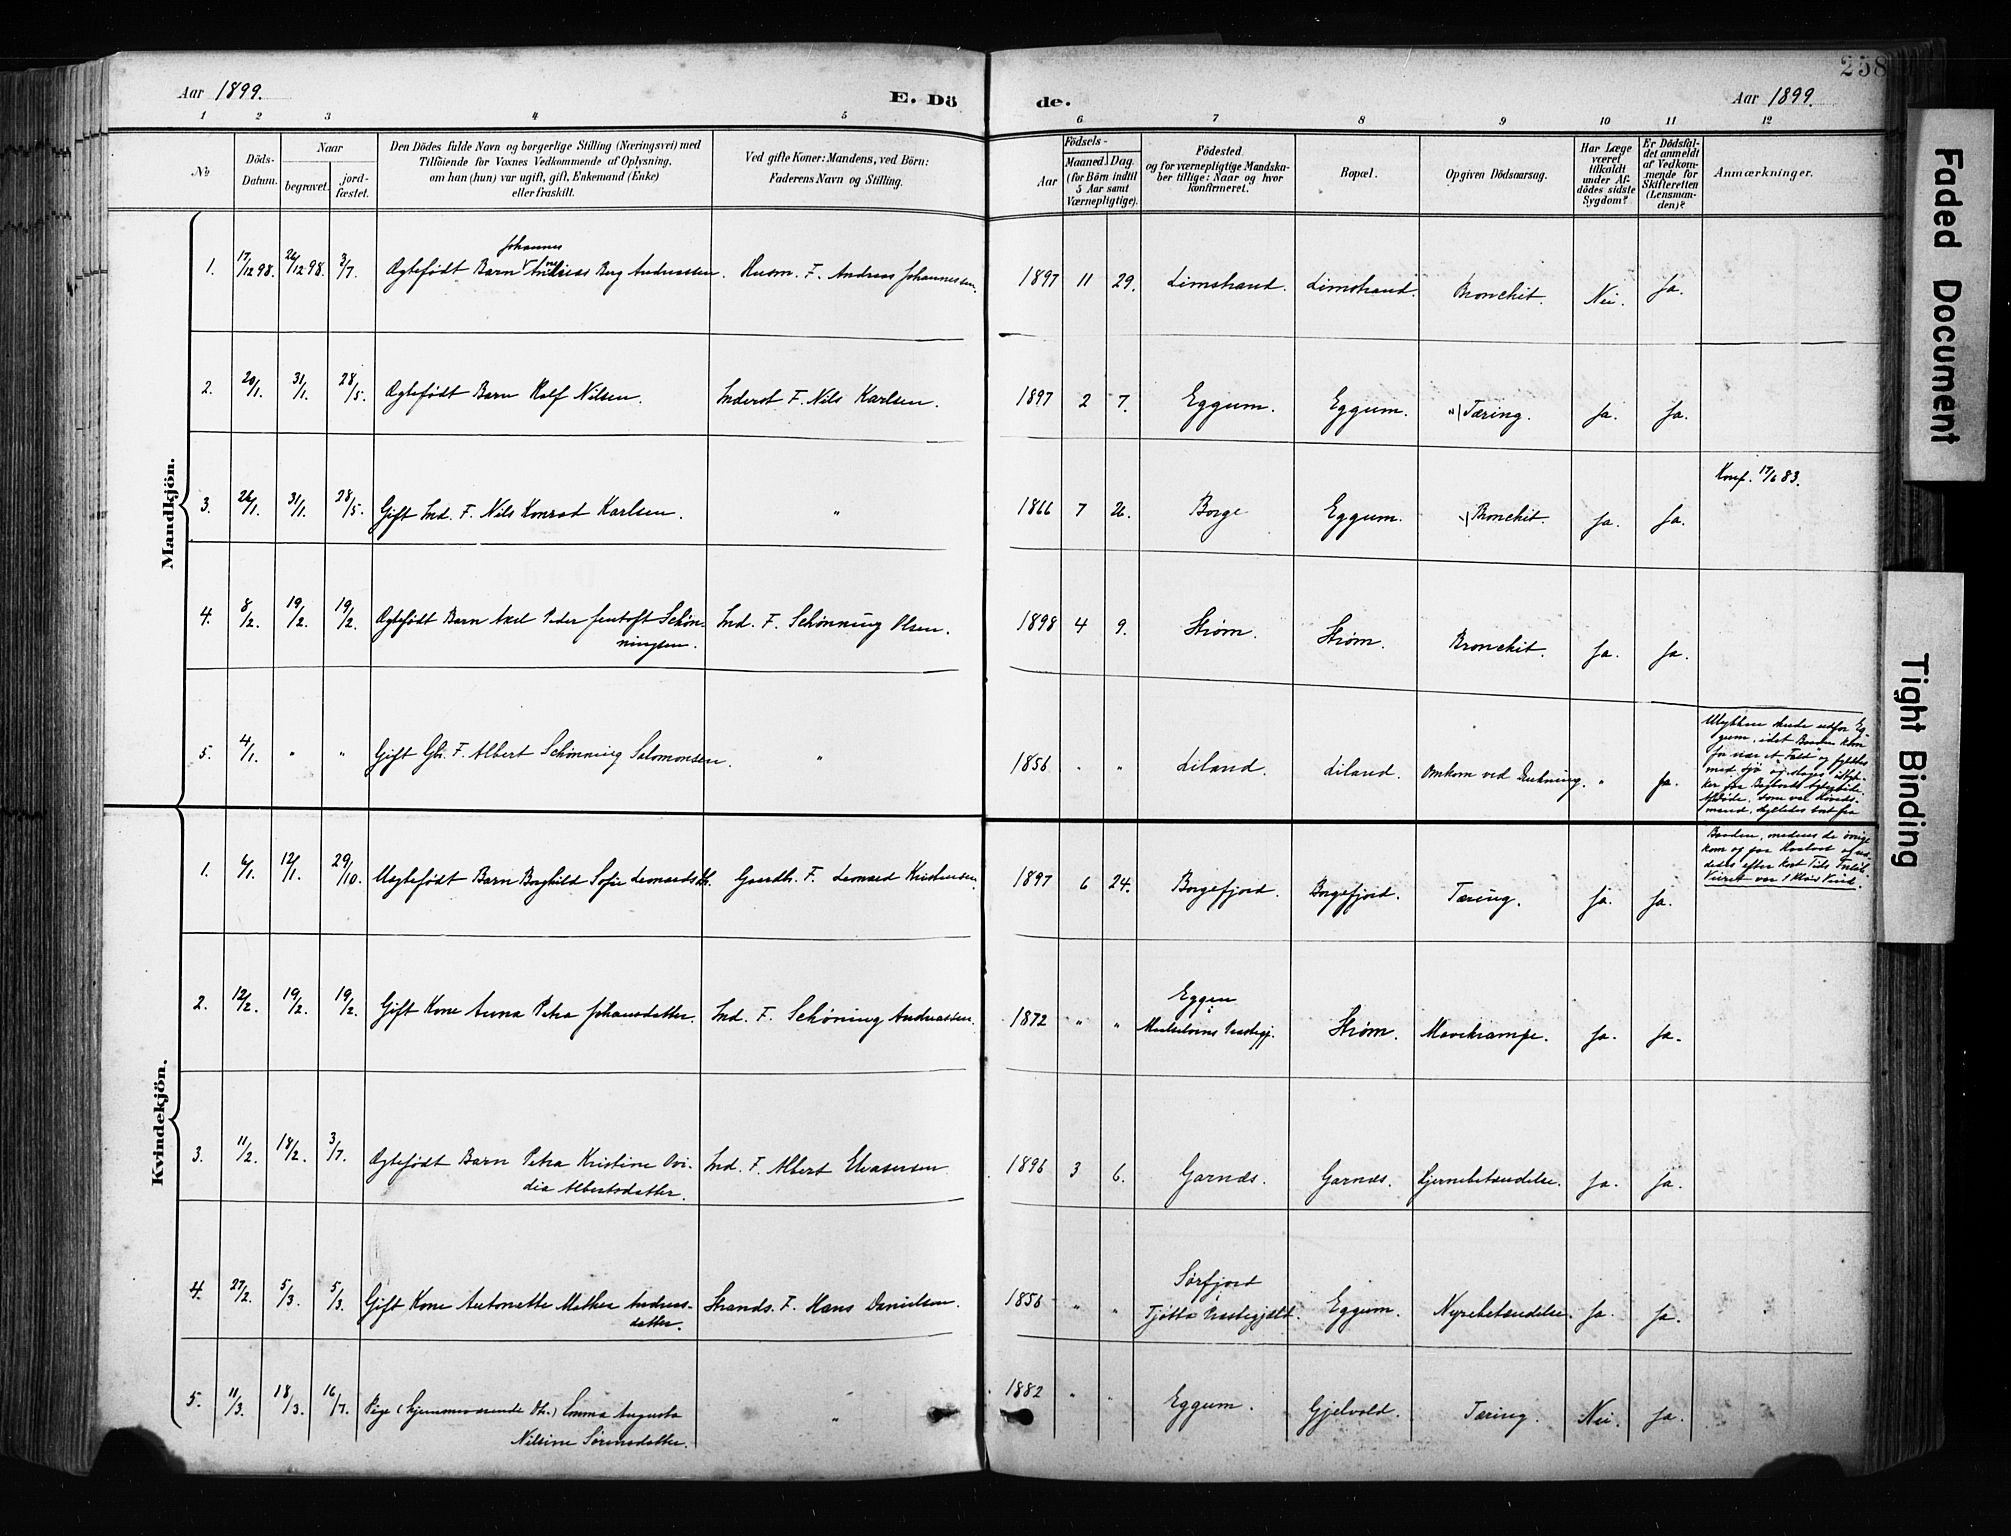 258
Aar 1899.
E. Dö
de.
Aar 1899.
1 2 3 4 5 6 7 8 9 10 11 12
№
Döds-
Datum.
Naar
begravet.
jord-
fæstet.
Den Dödes fulde Navn og borgerlige Stilling (Næringsvei) med
Tilföiende for Voxnes Vedkommende af Oplysning,
om han (hun) var ugift, gift, Enkemand (Enke)
eller fraskilt.
Ved gifte Koner: Mandens, ved Börn:
Faderens Navn og Stilling.
Födsels-
Aar
Maaned. Dag.
(for Börn indtil
5 Aar samt
Værnepligtige).
Födested
og for værnepligtige Mandska-
ber tillige: Naar og hvor
konfirmeret.
Bopæl.
Opgiven Dödsaarsag.
Har Læge
været
tilkaldt
under Af-
dödes sidste
Sygdom?
Er Dödsfal-
det anmeldt
af Vedkom-
mende for
Skifteretten
(Lensman-
den)?
Anmærkninger.
Mandkjön.
Johannes
1. 17/12 98. 26/12 98. 3/7. Ægtefødt Barn Berg Andreassen. Husm. F. Andreas Johannessen. 1897 11 29. Limstrand. Limstrand. Bronchit. Nei. Ja.
2. 20/1. 31/1. 28/5. Ægtefødt Barn Rolf Nilsen. Inderst F. Nils Karlsen. 1897 2 7. Eggum. Eggum. Tæring. Ja. Ja.
Konf. 17/6 83.
3. 26/1. 31/1. 28/5. Gift Ind. F. Nils Konrad Karlsen. " 1866 7 26. Borge Eggum. Bronchit. Ja. Ja.
4. 8/2. 19/2. 19/2. Ægtefødt Barn Axel Peder Jentoft Schøn-
ningsen. Ind. F. Schønning Olsen. 1898 4 9. Strøm. Strøm. Bronchit. Ja. Ja.
5. 4/1. " " Gift Gb. F. Albert Schønning Salomonsen. " 1856 " " Liland. Liland. Omkom ved Drukning. " Ja.
Ulykken skede udfor Eg-
gum, idet Baaden kom
for nær et "Fald" og fyldtes
med Sjø
som var Høveds-
mand, skylledes bort fra
Baaden, medens de øvrige
kom op paa Hvalvet og red-
dedes efter kort Tids Forløb.
Veiret var
Kvindekjön.
1. 6/1. 12/1. 29/10. Uægtefødt Barn Borghild Sofie Leonardsdtr. Gaardb. F. Leonard Kristensen. 1897 6 24. Borgefjord. Borgefjord. Tæring. Ja. Ja.
2. 12/2. 19/2. 19/2. Gift Kone Anna Petra Johansdatter. Ind. F. Schøning Andreassen. 1872 " " Eggen
Strøm. Mavekrampe. Ja. Ja.
3. 11/2. 18/2. 3/7. Ægtefødt Barn Petra Kristine Ovi-
dia Albertsdatter. Ind. F. Albert Eliasersen 1896 3 6. Garnæs. Garnæs. Hjernebetændelse. Ja. Ja.
4. 27/2. 5/3. 5/3. Gift Kone Antonette Mathea Andreas-
datter. Strands. F. Hans Danielsen. 1856 " " Sørfjord
Tjøtta Præstegjæld. Eggum. Nyrebetændelse. Ja. Ja.
5. 11/3. 18/3. 16/7. Pige (hjemmeværende Dtr.) Emma Augusta
Nilsine Sørensdatter. " 1882 " " Eggum. Gjelvold. Tæring. Nei. Ja.
Faded Document
Tight Binding